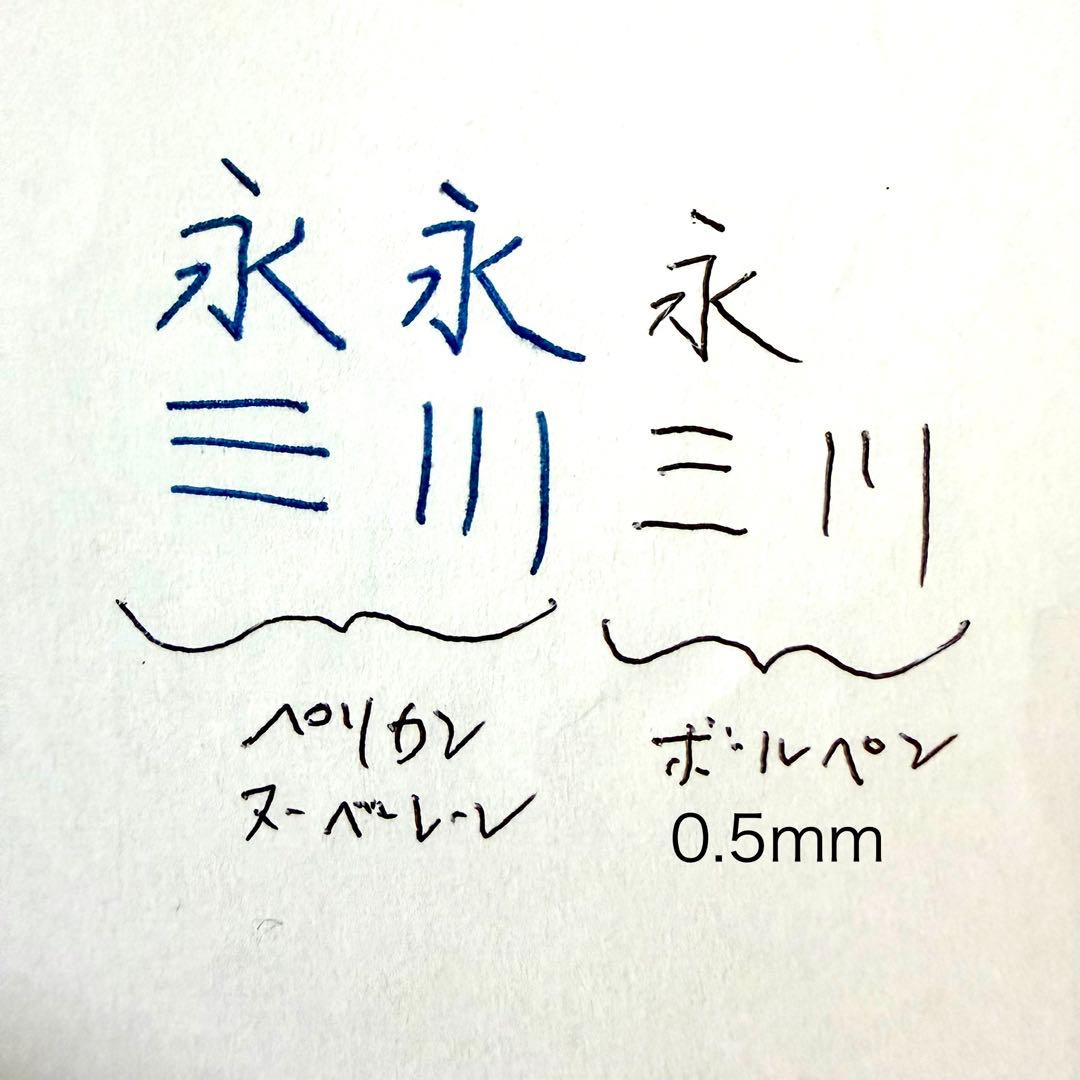 永 永 永
三 川 三 川
ペリカン ボールペン
ヌーベレーレ 0.5mm